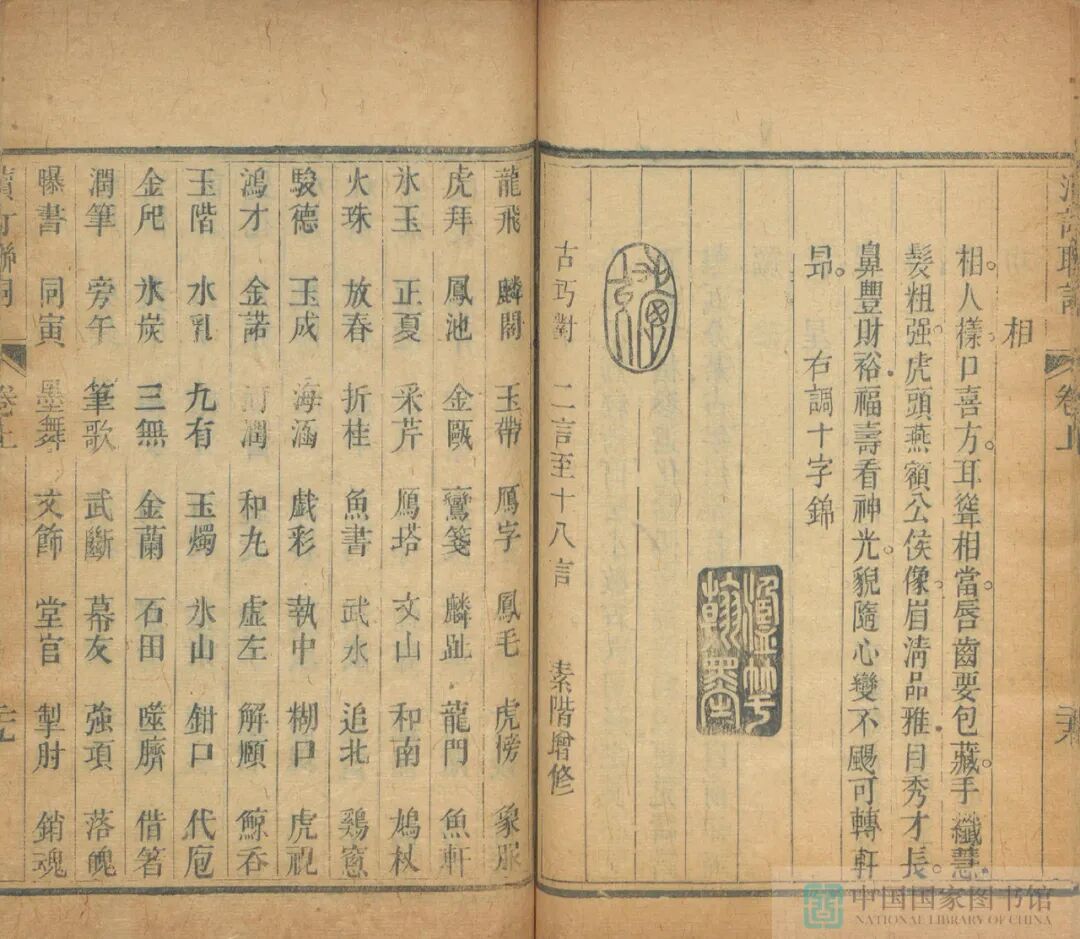 相
相人樣口喜方耳聳相當唇齒要包藏手纖慧
髮粗强虎頭燕頷公侯像眉淸品雅目秀才長
鼻豐財裕福壽看神光貌隨心變不颺可轉軒
昻 右調十字錦
古巧對 二言至十八言 素階增修
龍飛 麟閣 玉帶 鴈字 鳳毛 虎榜 象服
虎拜 鳳池 金甌 鸞箋 麟趾 龍門 魚軒
氷玉 正夏 采芹 鴈塔 文山 和南 鳩杖
火珠 放春 折桂 魚書 武水 追北 鷄窻
駿德 玉成 海涵 戯彩 執中 糊口 虎視
鴻才 金諾 河潤 和丸 虛左 解頤 鯨吞
玉階 水乳 九有 玉燭 氷山 鉗口 代庖
金戺 氷炭 三無 金蘭 石田 噬臍 借箸
潤筆 旁午 筆歌 武斷 幕友 強項 落魄
曝書 同寅 墨舞 文飾 堂官 掣肘 銷魂
卷上
中国国家图书馆
NATIONAL LIBRARY OF CHINA